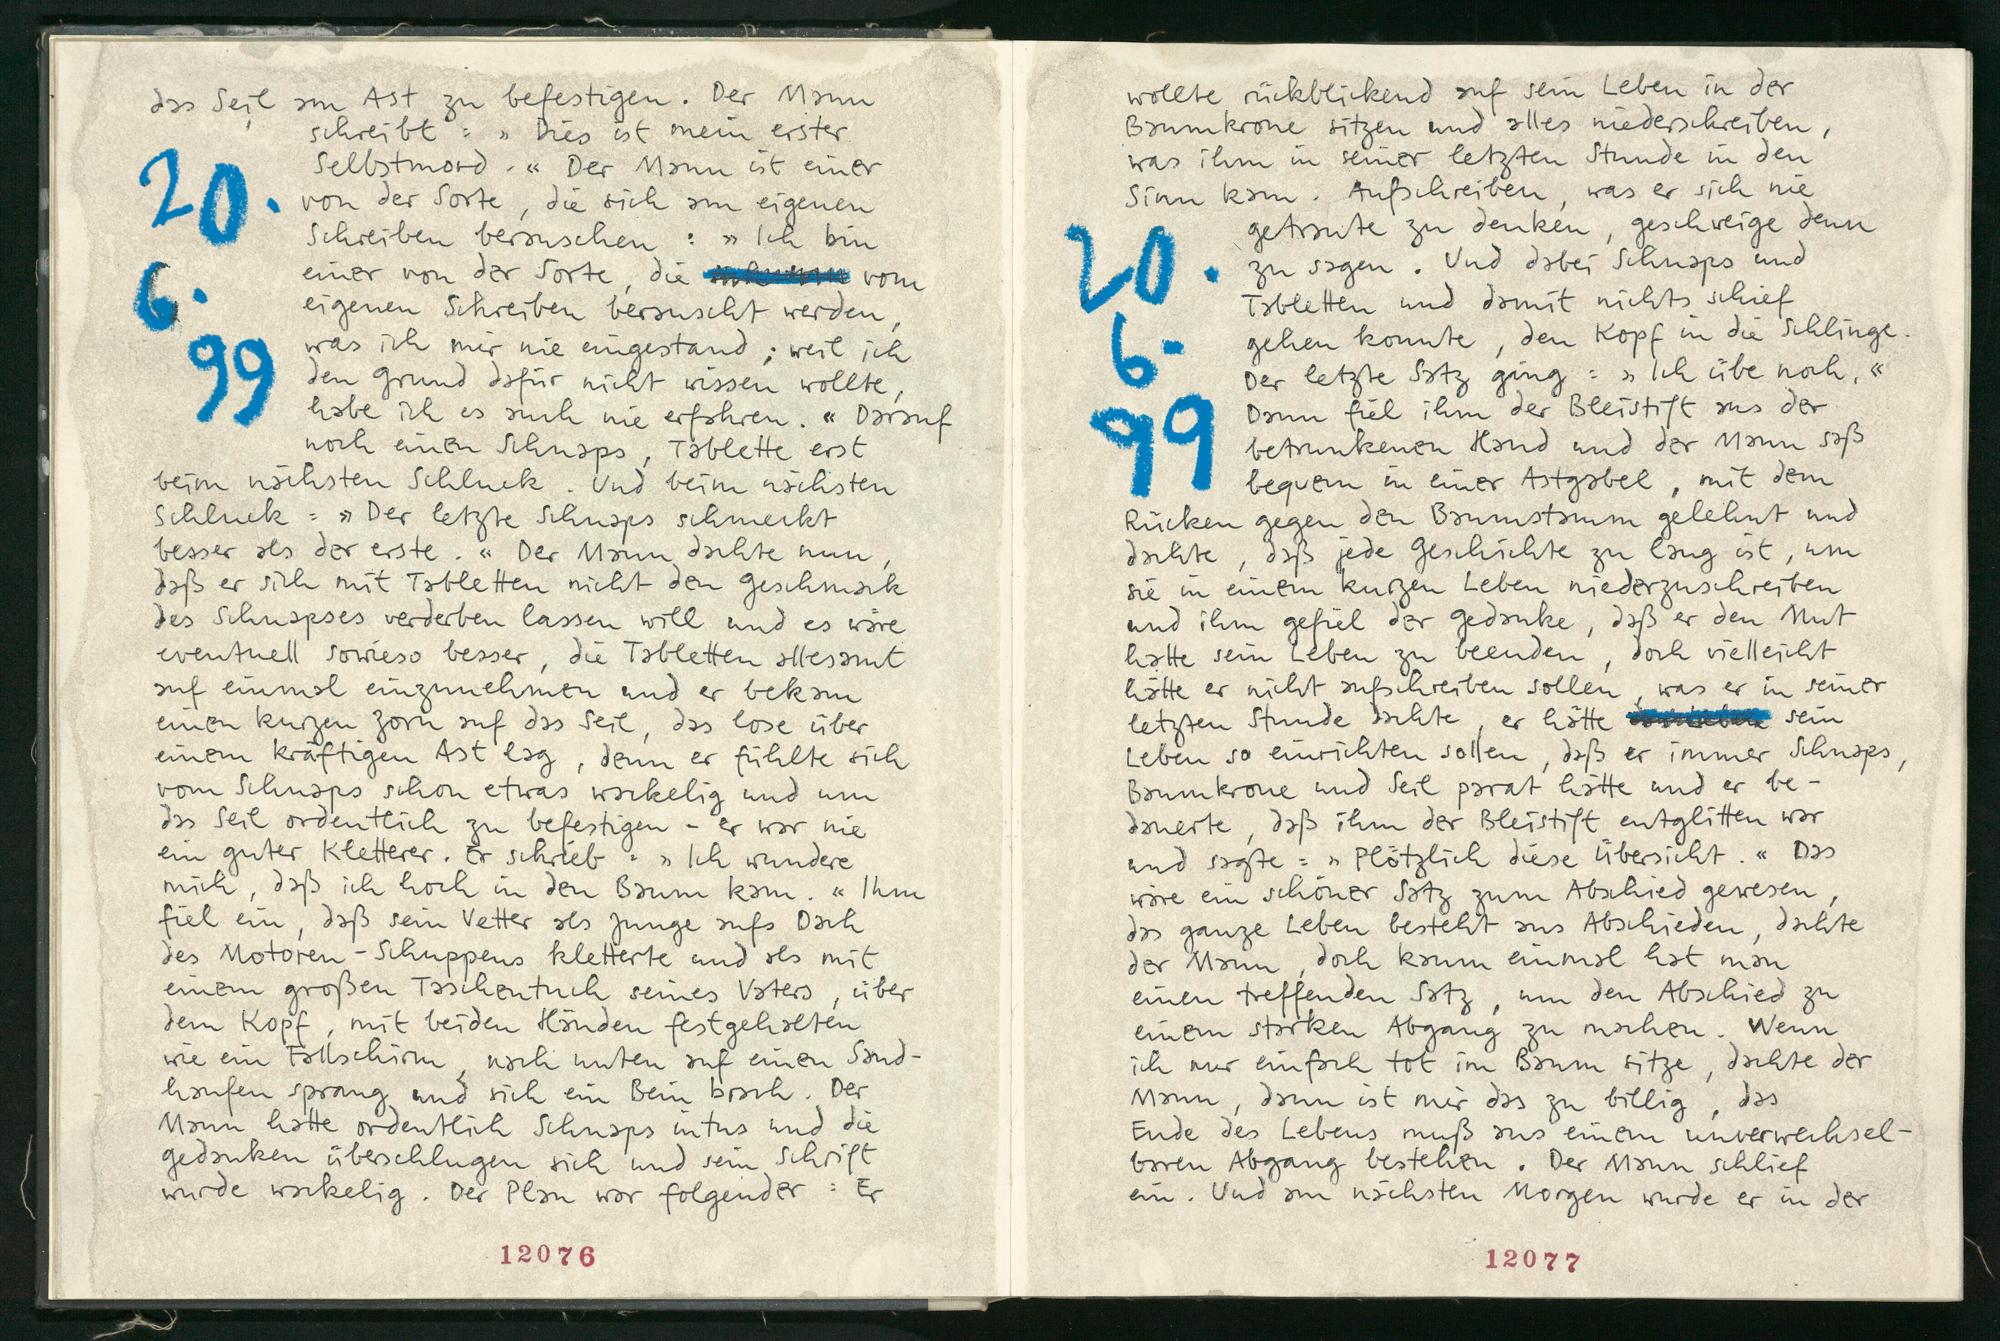 das Seil am Ast zu befestigen. Der Mann
schreibt : » Dies ist mein erster
Selbstmord. « Der Mann ist einer
20.
von der Sorte, die sich am eigenen
Schreiben berauschen : » Ich bin
einer von der Sorte, die vom
6.
eigenen Schreiben berauscht werden,
was ich mir nie eingestand ; weil ich
99
den Grund dafür nicht wissen wollte,
habe ich es auch nie erfahren. « Darauf
noch einen Schnaps, Tablette erst
beim nächsten Schluck. Und beim nächsten
Schluck : » Der letzte Schnaps schmeckt
besser als der erste. « Der Mann dachte nun,
daß er sich mit Tabletten nicht den Geschmack
des Schnapses verderben lassen will und es wäre
eventuell sowieso besser, die Tabletten allesamt
auf einmal einzunehmen und er bekam
einen kurzen Zorn auf das Seil, das lose über
einem kräftigen Ast lag, denn er fühlte sich
vom Schnaps schon etwas wackelig und um
das Seil ordentlich zu befestigen - er war nie
ein guter Kletterer. Er schrieb : » Ich wundere
mich, daß ich hoch in den Baum kam. « Ihm
fiel ein, daß sein Vetter als Junge aufs Dach
des Motoren-Schuppens kletterte und als mit
einem großen Taschentuch seines Vaters, über
dem Kopf, mit beiden Händen festgehalten
wie ein Fallschirm, nach unten auf einen Sand-
haufen sprang und sich ein Bein brach. Der
Mann hatte ordentlich Schnaps intus und die
Gedanken überschlugen sich und sein Schrift
wurde wackelig. Der Plan war folgender : Er
12076
wollte rückblickend auf sein Leben in der
Baumkrone sitzen und alles niederschreiben,
was ihm in seiner letzten Stunde in den
Sinn kam. Aufschreiben, was er sich nie
getraute zu denken, geschweige denn
20.
zu sagen. Und dabei Schnaps und
Tabletten und damit nichts schief
6.
gehen konnte, den Kopf in die Schlinge.
Der letzte Satz ging : » Ich übe noch. «
99
Dann fiel ihm der Bleistift aus der
betrunkenen Hand und der Mann saß
bequem in einer Astgabel, mit dem
Rücken gegen den Baumstamm gelehnt und
dachte, daß jede Geschichte zu lang ist, um
sie in einem kurzen Leben niederzuschreiben
und ihm gefiel der Gedanke, daß er den Mut
hatte sein Leben zu beenden, doch vielleicht
hätte er nicht aufschreiben sollen, was er in seiner
letzten Stunde dachte, er hätte sein
Leben so einrichten sollen, daß er immer Schnaps,
Baumkrone und Seil parat hätte und er be-
dauerte, daß ihm der Bleistift entglitten war
und sagte : » Plötzlich diese Übersicht. « Das
wäre ein schöner Satz zum Abschied gewesen,
das ganze Leben besteht aus Abschieden, dachte
der Mann, doch kaum einmal hat man
einen treffenden Satz, um den Abschied zu
einem starken Abgang zu machen. Wenn
ich nur einfach tot im Baum sitze, dachte der
Mann, dann ist mir das zu billig, das
Ende des Lebens muß aus einem unverwechsel-
baren Abgang bestehen. Der Mann schlief
ein. Und am nächsten Morgen wurde er in der
12077